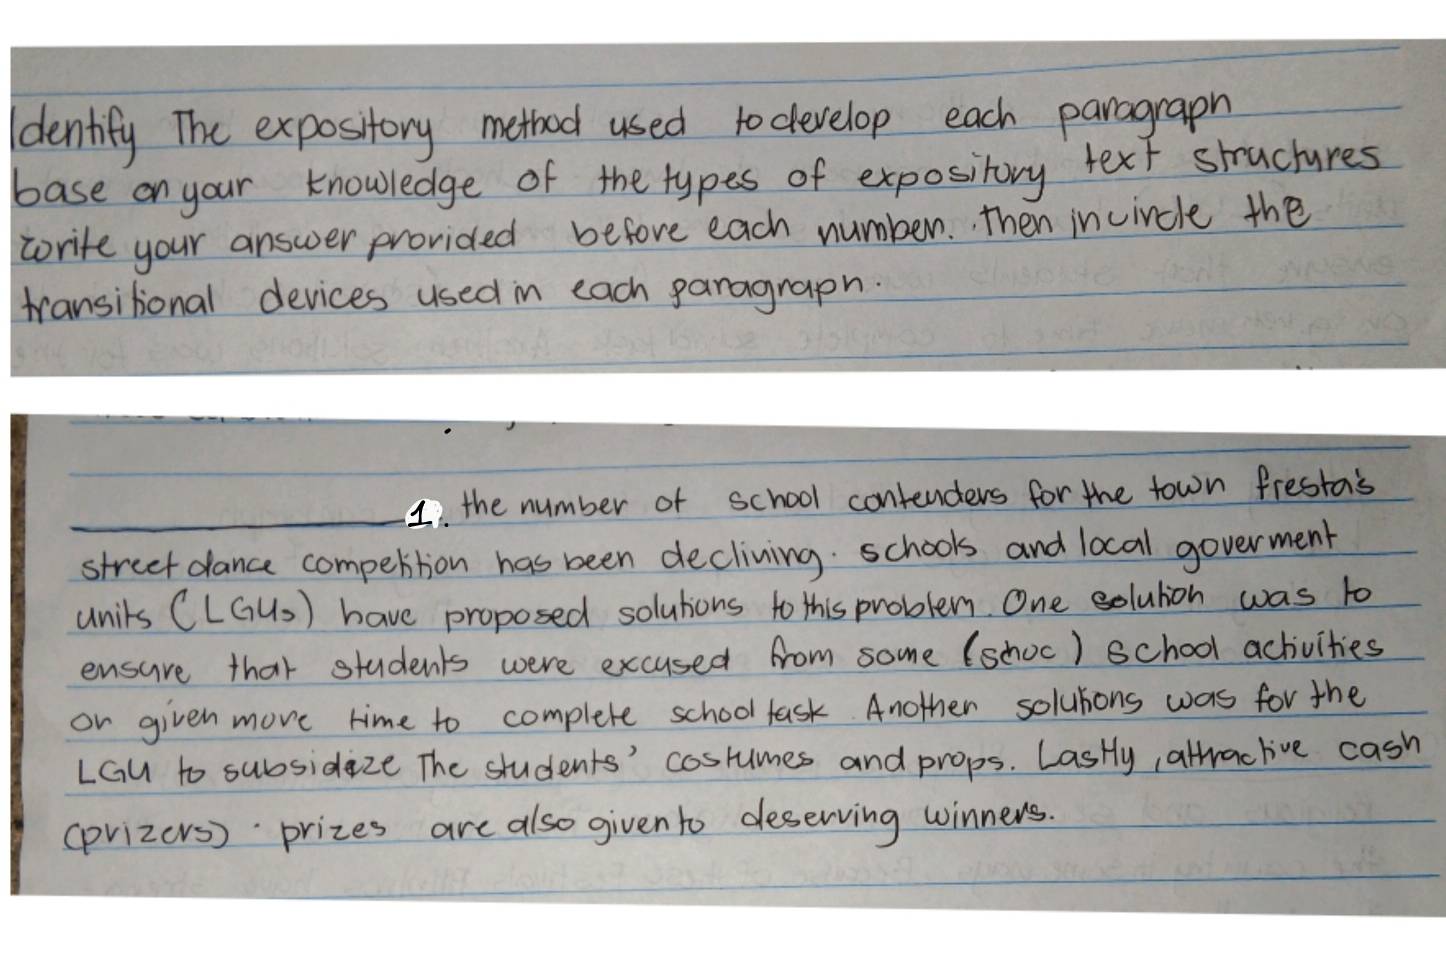 Identify The expository method used to develop each paragraph
base on your knowledge of the types of expository text structures
write your answer provided before each number. Then incircle the
transitional devices used in each paragraph.
1. the number of school contenders for the town fresta's
street dance competition has been declining. schools and local goverment
units (LGUs) have proposed solutions to this problem. One solution was to
ensure that students were excused from some (schoc) school activities
or given more time to complete school task. Another solutions was for the
LGU to subsidize The students' costumes and props. Lastly, attractive cash
(prizers). prizes are also given to deserving winners.